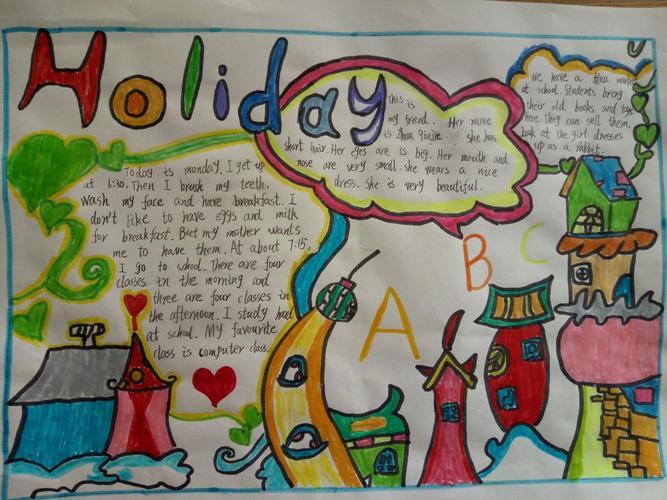 Holiday
Today is monday. I get up
at 6:30. Then I brush my teeth,
wash my face and have breakfast. I
don't like to have eggs and milk
for breakfast. But my mother wants
me to have them. At about 7:15,
I go to school. There are four
classes in the morning and
three are four classes in
the afternoon. I study hard
at school. My favourite
class is computer class.
This is
my friend. Her name
is Zhou she has
short hair. Her eyes are is big. Her mouth and
nose are very small. She wears a nice
dress. she is very beautiful.
We have a flea
at school. Students bring
their old books and toys
here. They can sell them.
Look at the girl dresses
up as a rabbit.
A
B
C